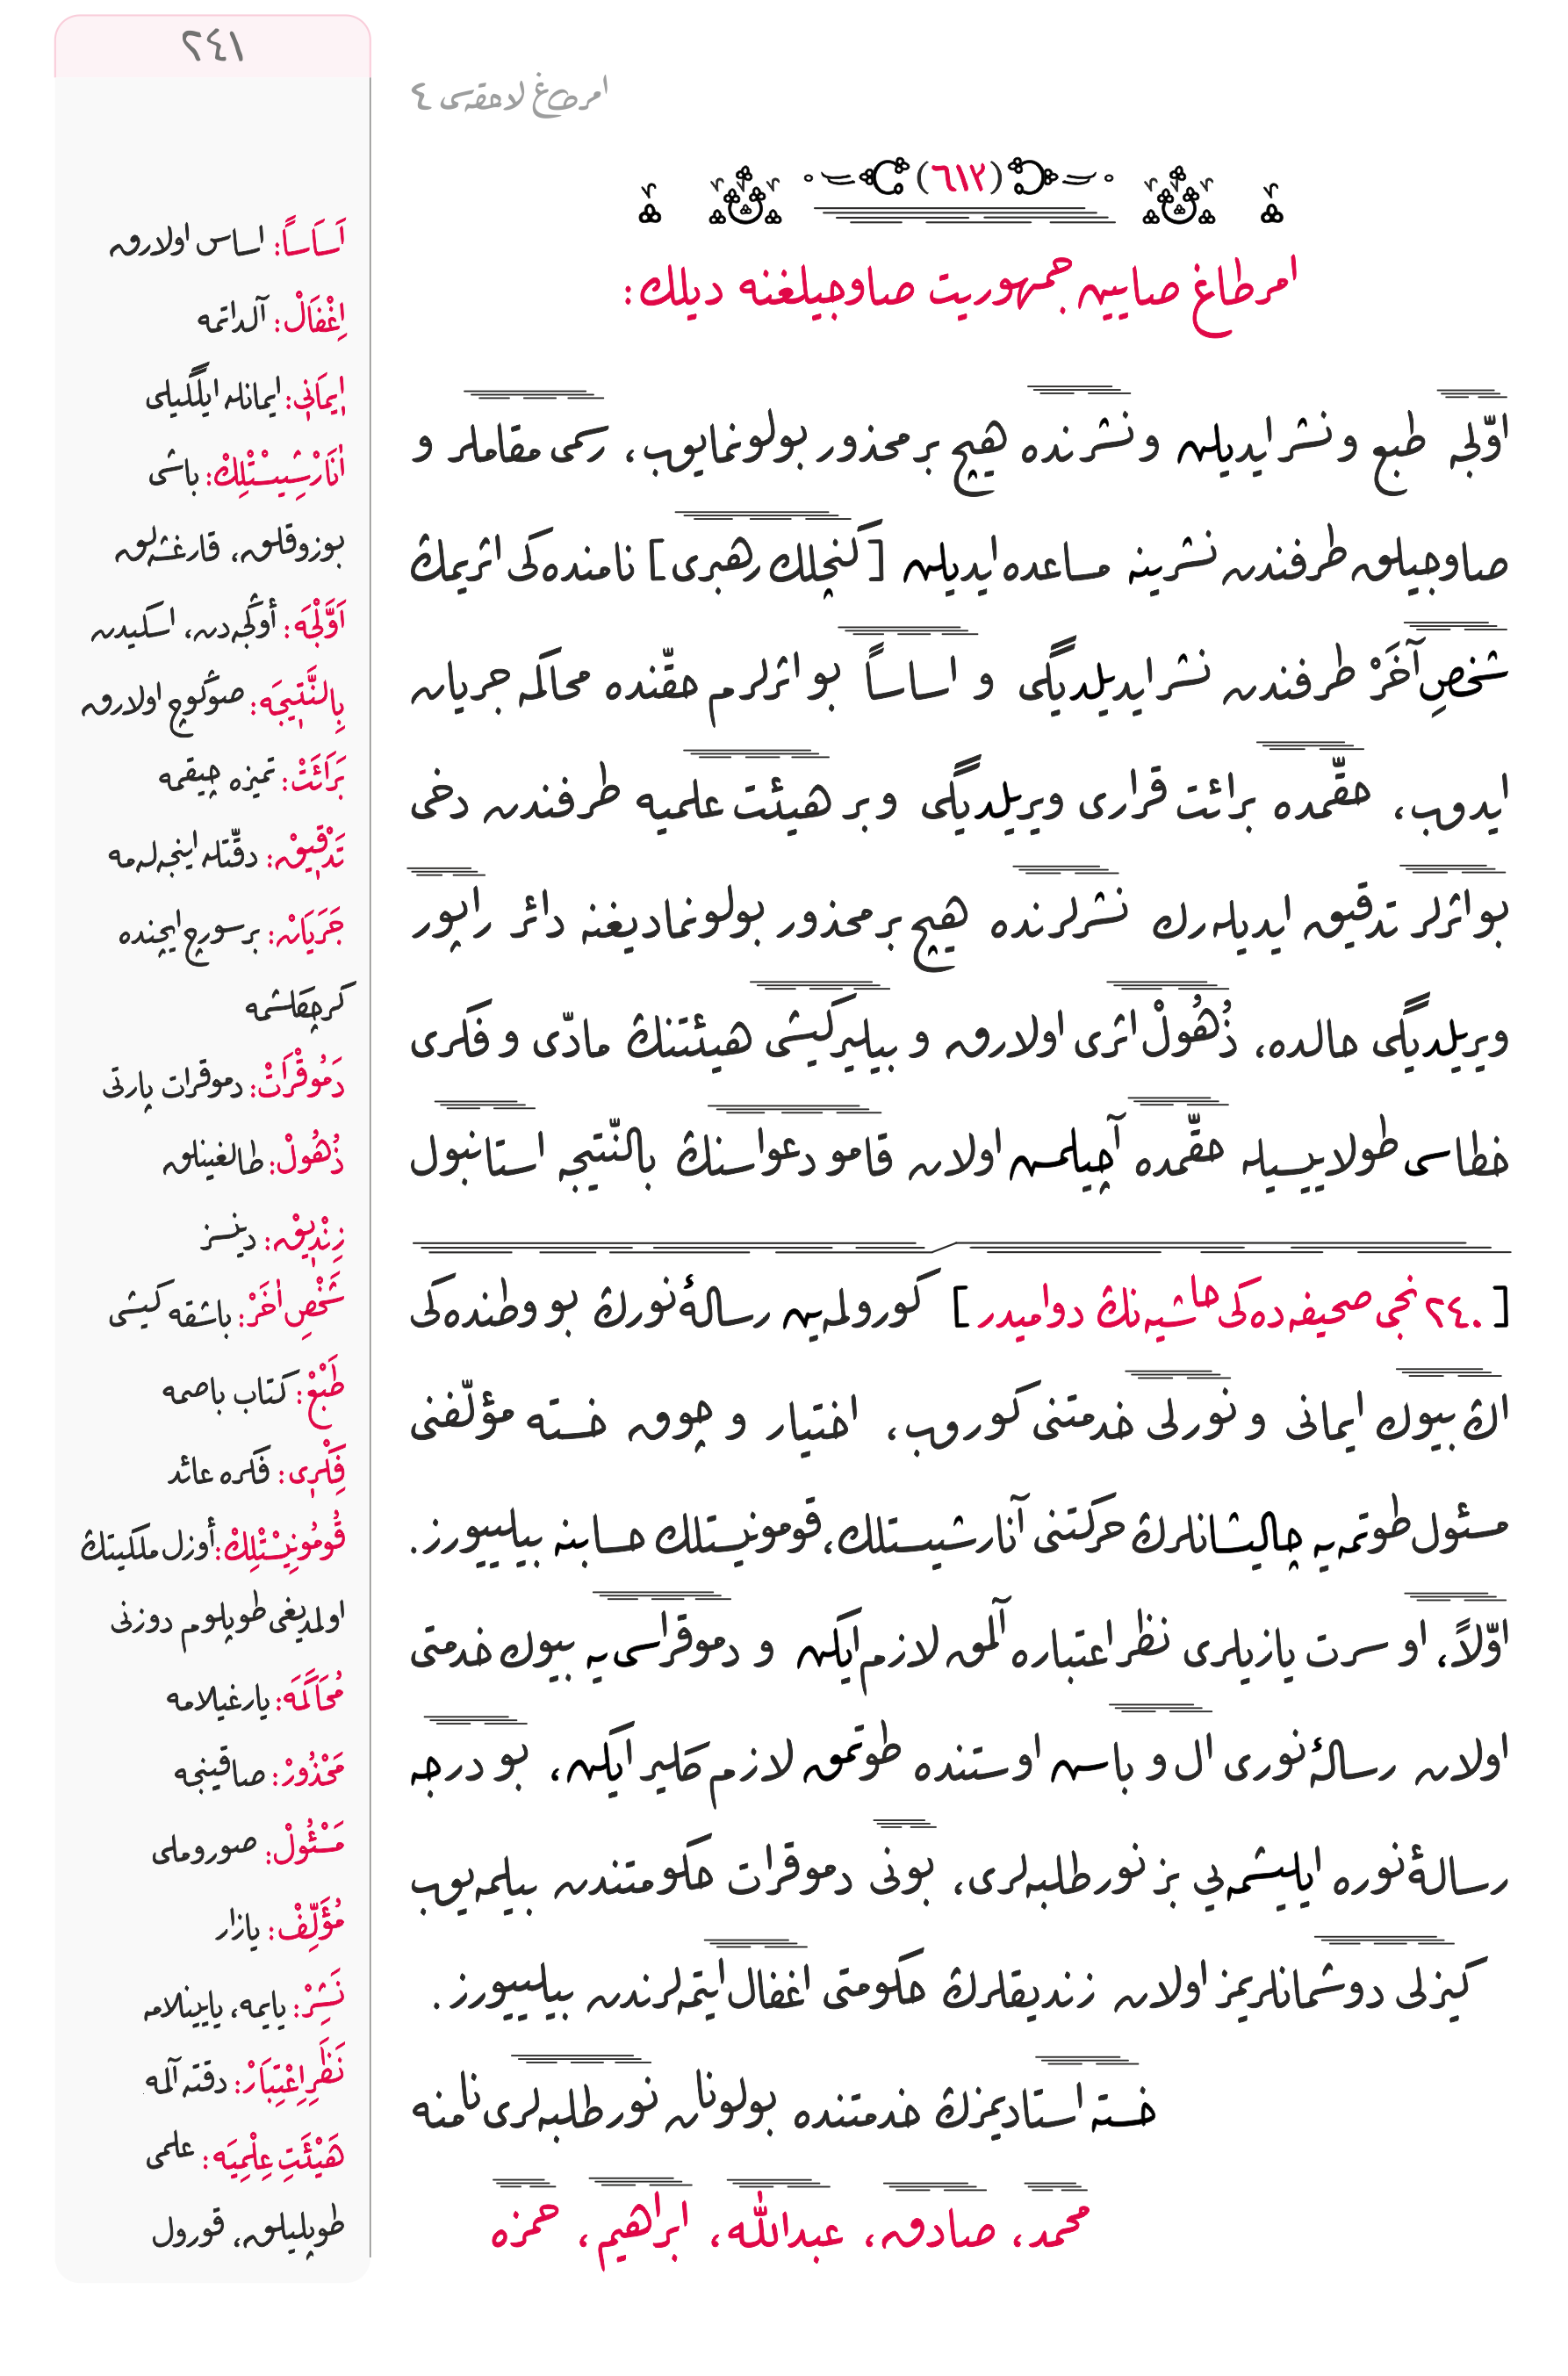 ٢٤١
امرطاغ لاحقه‌سی ٤
(٦١٢)
امرطاغ صاییه جمهوریت صاوجیلغنه دیلك:
اوّلجه طبع و نشر ایدیلن و نشرنده هیچ بر محذور بولونمایوب، رسمی مقاملر و
صاوجیلق طرفندن نشرینه مساعده ایدیلن [كنجلك رهبری] نامنده‌كی اثریمڭ
شخصِ آخَرْ طرفندن نشر ایدیلدیگی و اساساً بو اثرلرم حقّنده محاكمه جریان
ایدوب، حقّمده برائت قراری ویریلدیگی و بر هیئت علمیه طرفندن دخی
بو اثرلر تدقیق ایدیله‌رك نشرلرنده هیچ بر محذور بولونمادیغنه دائر راپور
ویریلدیگی حالده، ذُهُولْ اثری اولارق و بیلیركیشی هیئتنڭ مادّی و فكری
خطاسی طولاییسیله حقّمده آچیلمسن اولان قامو دعواسنڭ بالنّتیجه استانبول
[٢٤٠ نجی صحیفه‌ده‌كی حاشیه‌نڭ دوامیدر] كورولمه‌ین رسالهٔ نورڭ بو وطنده‌كی
اڭ بیوك ایمانی و نورلی خدمتنی كوروب، اختیار و چوق خسته مؤلّفنی
مسئول طوتمه‌یه چالیشانلرڭ حركتنی آنارشیستلك، قومونیستلك حسابنه بیلییورز.
اوّلاً، او سرت یازیلری نظر اعتباره آلمق لازم ایكن و دموقراسی‌یه بیوك خدمتی
اولان رسالهٔ نوری ال و باسن اوستنده طوتمق لازم كلیر ایكن، بو درجه
رسالهٔ نوره ایلیشمه‌یی بز نور طلبه‌لری، بونی دموقرات حكومتندن بیلمه‌یوب
كیزلی دوشمانلریمز اولان زندیقلرڭ حكومتی اغفال ایتمه‌لرندن بیلییورز.
خسته استادیمزڭ خدمتنده بولونان نور طلبه‌لری نامنه
محمد، صادق، عبدالله، ابراهیم، حمزه
اَسَاسًا: اساس اولارق
اِغْفَالْ: آلداتمه
اِیمَانِی: ایمانله ایلگیلی
اٰنَارْشِیسْتْلِكْ: باشی
بوزوقلق، قارغشه‌لق
اَوَّلْجَه: أوڭجه‌دن، اسكیدن
بِالنَّتِیجَه: صوڭوچ اولارق
بَرَائَتْ: تمیزه چیقمه
تَدْقِیقْ: دقّتله اینجه‌له‌مه
جَرَیَانْ: بر سورچ ایچنده
كرچكلشمه
دَمُوقْرَاتْ: دموقرات پارتی
ذُهُولْ: طالغینلق
زِنْدِیقْ: دینسز
شَخْصِ اٰخَرْ: باشقه كیشی
طَبْعْ: كتاب باصمه
فِكْرِی: فكره عائد
قُومُونِیسْتْلِكْ: أوزل ملكیتڭ
اولمدیغی طوپلوم دوزنی
مُحَاكَمَه: یارغیلامه
مَحْذُورْ: صاقینجه
مَسْئُولْ: صوروملی
مُؤَلِّفْ: یازار
نَشِرْ: یایمه، یایینلامه
نَظَرِ اِعْتِبَارْ: دقته آلمه
هَیْئَتِ عِلْمِیَه: علمی
طوپلیلق، قورول